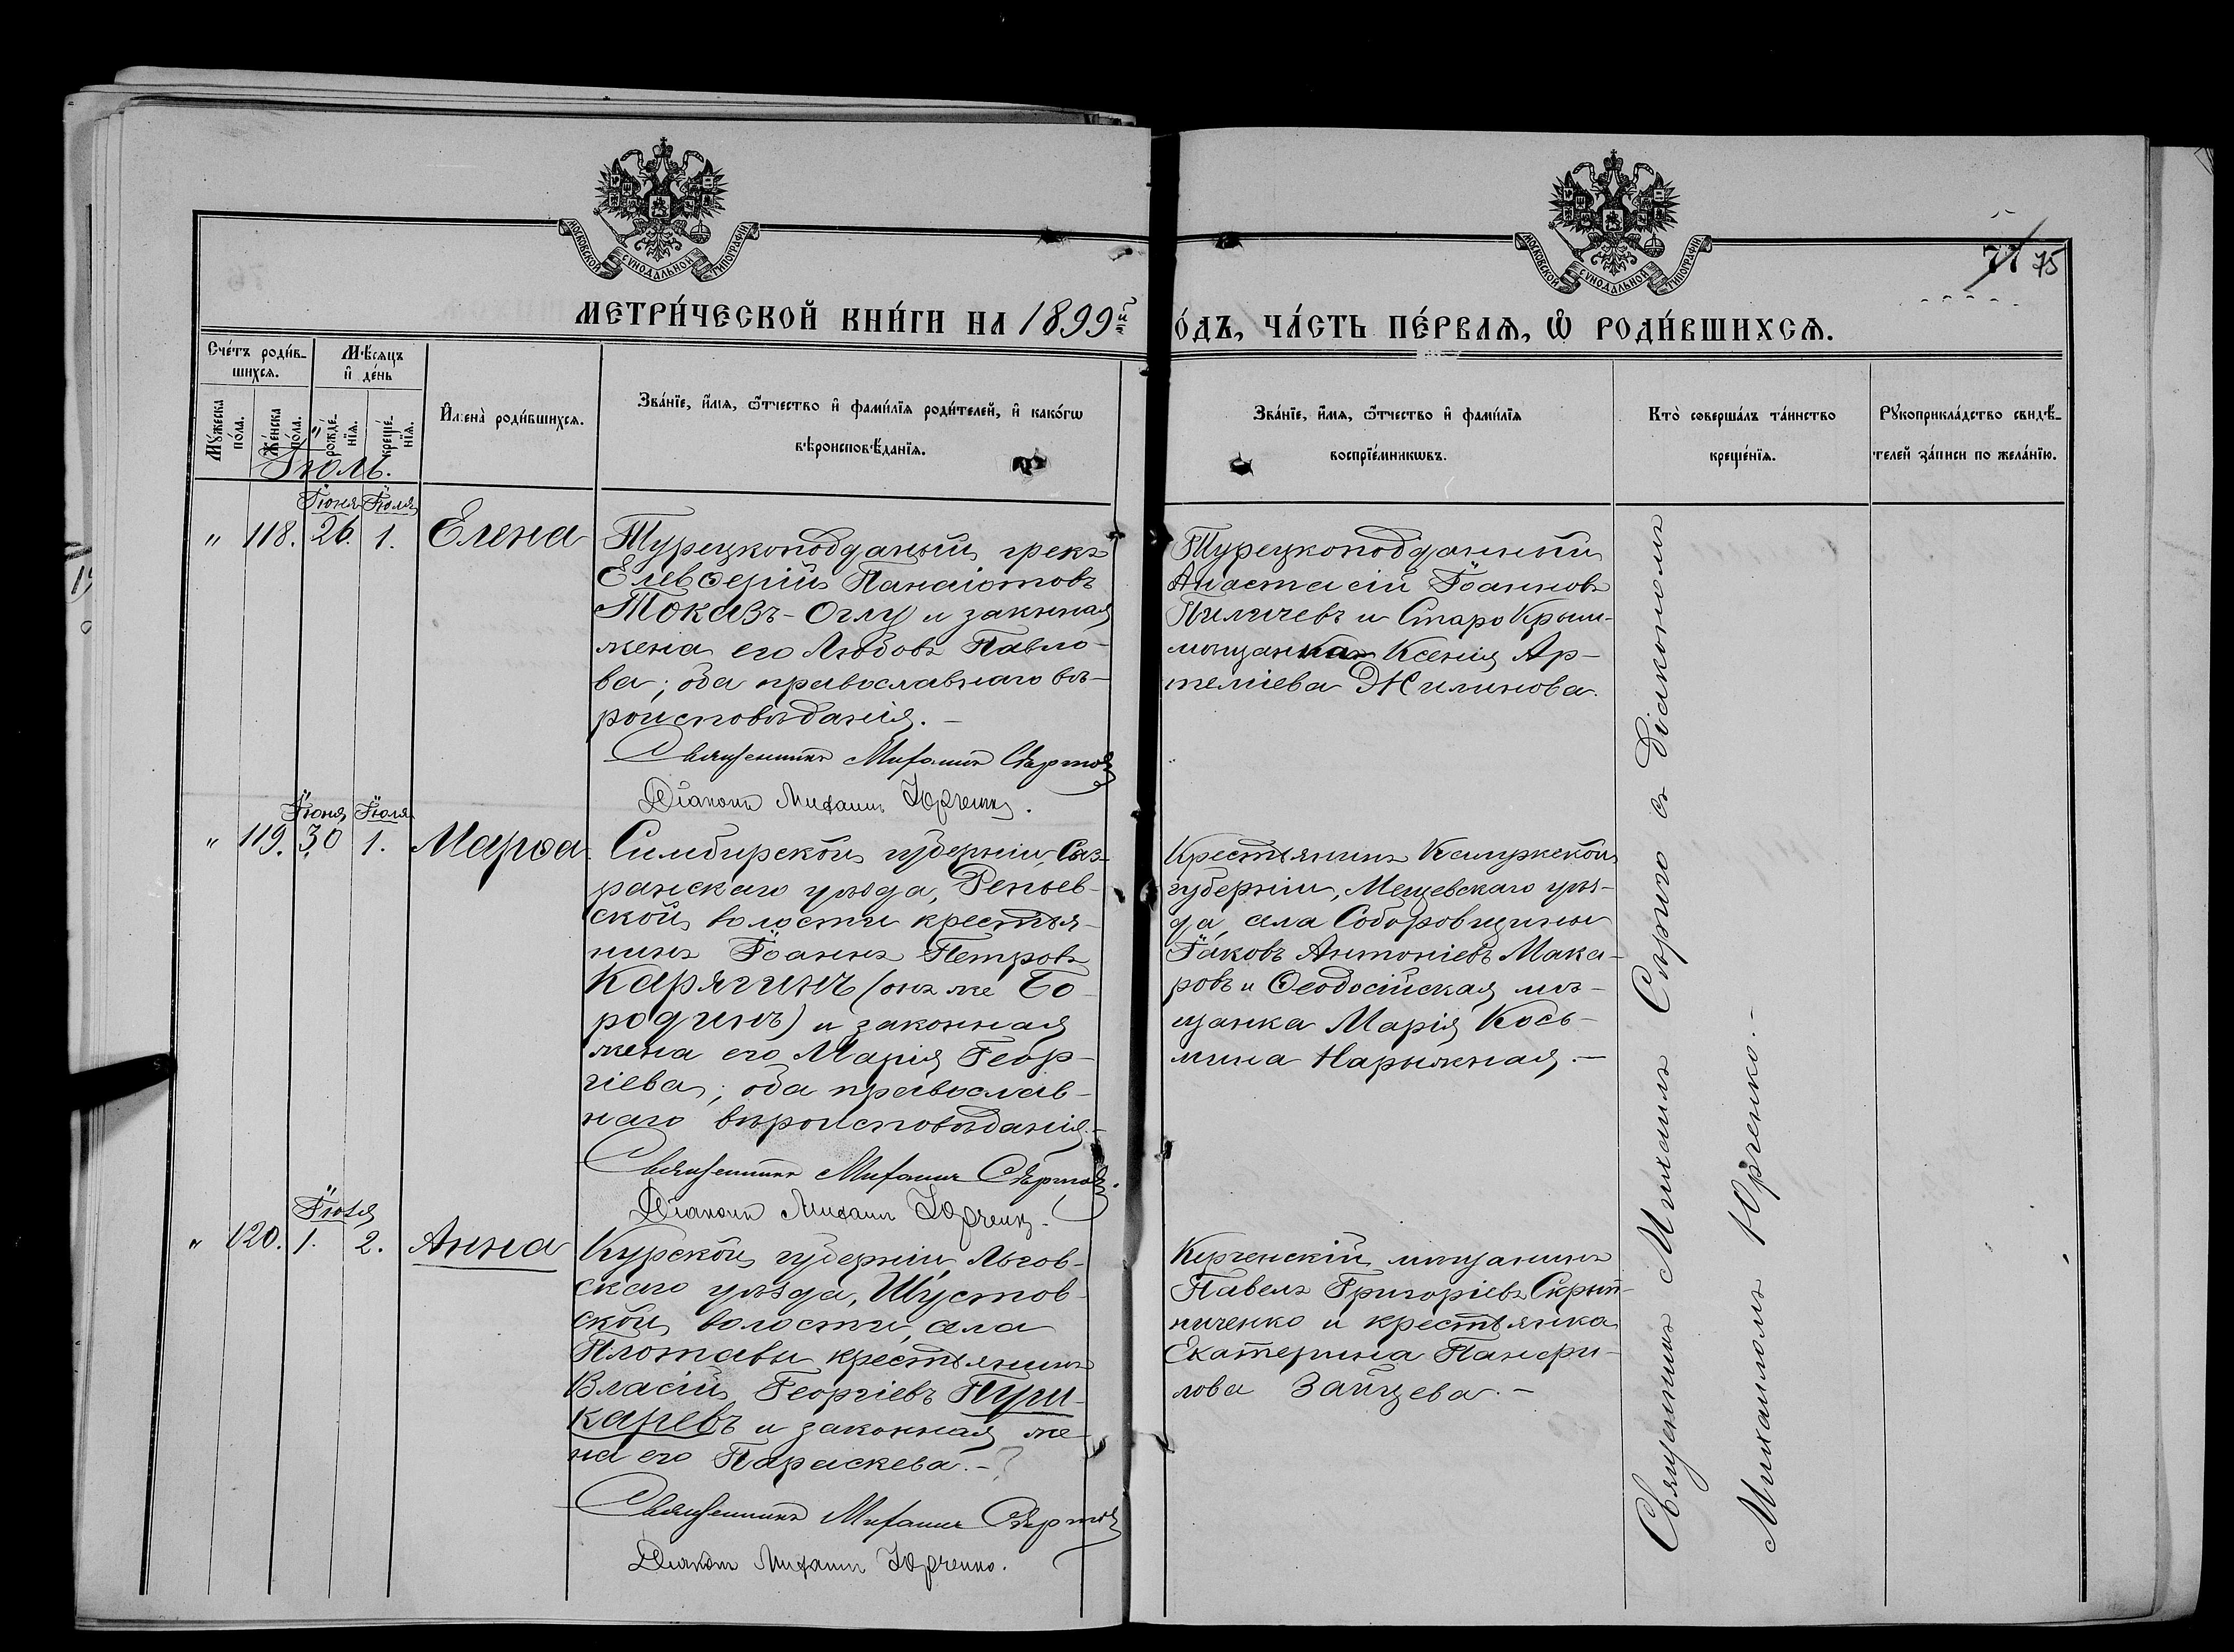 МОСКОВСКОЙ СѴНОДАЛЬНОЙ ТИПОГРАФІИ
МОСКОВСКОЙ СѴНОДАЛЬНОЙ ТИПОГРАФІИ
75
МЕТРИ́ЧЕСКОЙ КНИ́ГИ НА 1899й
О́ДЪ, ЧА́СТЬ ПЕ́РВАѦ, Ѡ҆ РОДИ́ВШИХСѦ.
Сче́тъ роди́в-
шихсѧ.
Мꙋ́жеска по́ла.
Же́нска по́ла.
Мѣ́сѧцъ
и҆ де́нь
рожде́-
нїѧ.
креще́-
нїѧ.
И҆мена̀ роди́вшихсѧ.
Зва́нїе, и҆́мѧ, ѻ҆́тчество и҆ фами́лїѧ роди́телей, и҆ како́гѡ
вѣроисповѣ́данїѧ.
Зва́нїе, и҆́мѧ, ѻ҆́тчество и҆ фами́лїѧ
воспрїе́мникѡвъ.
Кто̀ соверша́лъ та́инство
креще́нїѧ.
Рꙋкоприкла́дство свидѣ́-
телей за́писи по жела́нїю.
Іюль.
Іюня Іюля
" 118. 26. 1. Елена
Турецкоподданый грекъ
Елевѳерій Панаіотовъ
Токазъ-Оглу и законная
жена его Любовь Павло-
ва; оба православнаго вѣ-
роисповѣданія.-
Священникъ Михаилъ Сѣргіо
Діаконъ Михаилъ Юрченко.
Турецкоподданный
Анастасій Іоанновъ
Пиличевъ и СтароКрым.
мѣщанка Ксенія Ар-
теміева Жилинова.
Іюня Іюля
" 119. 30 1. Марѳа.
Симбирской губерніи, Сыз-
ранскаго уѣзда, Репьев-
ской волости крестья-
нинъ Іоаннъ Петровъ
Карягинъ (онъ же Бо-
родинъ) и законная
жена его Марія Геор-
гіева; оба православ-
наго вѣроисповѣданія.-
Священникъ Михаилъ Сѣргіо
Діаконъ Михаилъ Юрченко.
Крестьянинъ Калужской
губерніи, Мещевскаго уѣз-
да, села Соборовщины
Іаковъ Антоніевъ Мака-
ровъ и Ѳеодосійская мѣ-
щанка Марія Кось-
мина Нарыжная.-
Іюля
" 120. 1. 2. Анна
Курской губерніи, Льгов-
скаго уѣзда, Шустов-
ской волости, села
Плотавы крестьянинъ
Власій Георгіевъ Пуш-
каревъ и законная же-
на его Параскева.-
Священникъ Михаилъ Сѣргіо
Діаконъ Михаилъ Юрченко.
Керченскій мѣщанинъ
Павелъ Григоріевъ Скрып-
ниченко и крестьянка
Екатерина Панфи-
лова Зайцева.-
Священникъ Михаилъ Сѣргіо съ Діакономъ
Михаиломъ Юрченко.-